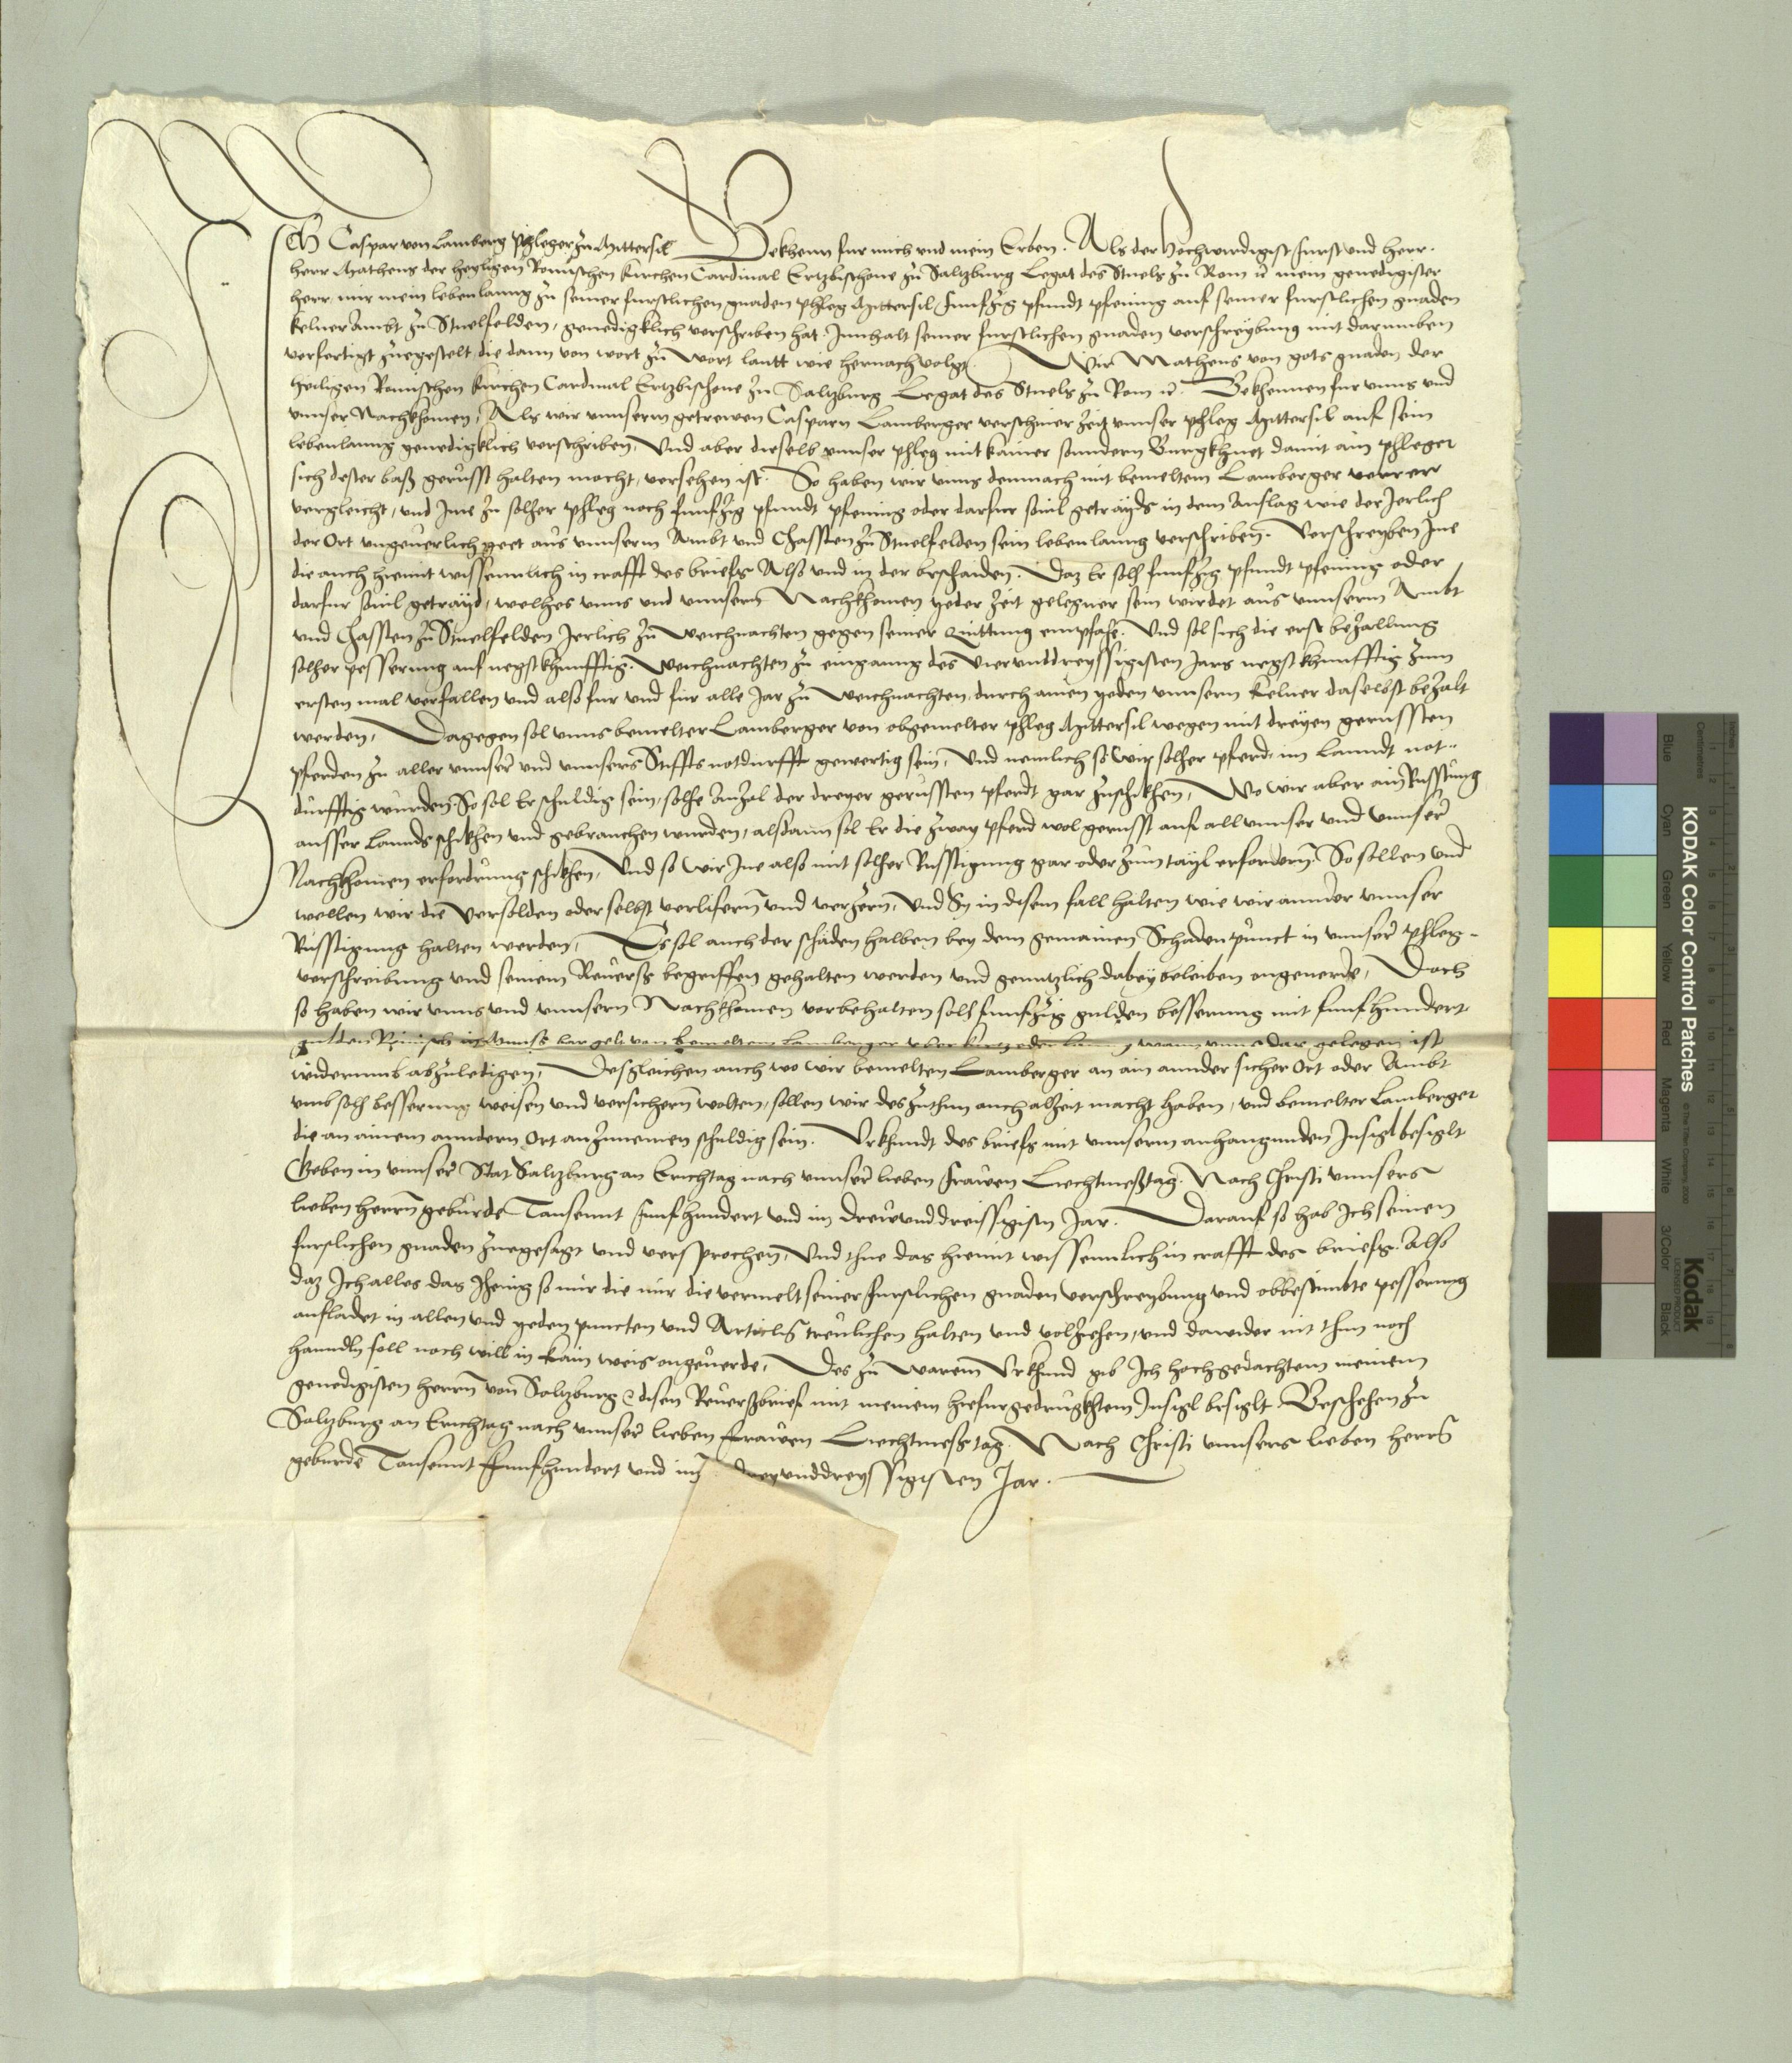 Ich Caspar von Lamberg Phleger zu Mittersil Bekhenn fur mich und mein Erben. Als der Hochwirdigist Furst und herr.
herr Matheus der heyligen Romischen kirchen Cardinal Ertzbischove zu Saltzburg Legat des Stuels zu Rom etc mein genedigister
herr mir mein lebenlanng zu seiner furstlichen gnaden phleg Mittersil funfzig pfundt pfening auf seiner furstlichen gnaden
kelner Ambt zu Stuelfelden, genedigklich verschriben hat Innhalt seiner furstlichen gnaden verschreybung mir darumben
verfertigt zuegestelt die dann von wort zu Wort lautt wie hernach volgt Wir Matheus von gots gnaden der
heiligen Romischen kirchen Cardinal Ertzbischove zu Saltzburg Legat des Stuels zu Rom etc. Bekhennen fur unns und
unnser Nachkhomen, Als wir unnserm getrewen Casparn Lamberger verschiner zeit unnser phleg Mittersil auf sein
lebenlanng genedigklich verschriben, Und aber dieselb unnser phleg mit kainer sondern Burgkhuet damit ain phleger
sich dester baß gerusst halten mocht, versehen ist. So haben wir unns demnach mit bemeltem Lamberger verrer
vergleicht, und Ime zu solher phleg noch funfzig pfundt pfening oder darfur sovil getrayds in dem Anslag wie der Jerlich
der Ort ungeverlich geet aus unnserm Ambt und Chassten zu Stuelfelden sein lebenlanng verschriben. Verschreyben Ime
die auch hiemit wissennlich in crafft des briefs Also und in der beschaiden. Daz Er solh funfzig pfundt pfening oder
darfur sovil getrayd, welhes unns und unnsern Nachkhomen yeder zeit gelegner sein wirdet aus unnserm Ambt
und Chassten zu Stuelfelden Jerlich zu Weichnachten gegen seiner Quittung emphahe. Und sol sich die erst bezallung
solher pesserung auf negstkhunfftig Weichnachten zu einganng des Vierunddreyssigisten Jars negstkhunfftig zum
ersten mal verfallen und also fur und fur alle Jar zu Weichnachten, durch ainen yeden unnsern kelner daselbst bezalt
werden, Dagegen sol unns bemelter Lamberger von obgemelter phleg Mittersil wegen mit dreyen gerussten
pferden zu aller unnser und unnsers Stiffts notdurfft gewertig sein, Und nemlich so wir solher pferd im Lanndt not-
durfftig wurden, So sol Er schuldig sein, solhe Anzal der dreyer gerussten pferdt gar zuschikhen, Wo wir aber ain Russtung
ausser Lannds schikhen und gebrauchen wurden, alsdann sol Er die zway pferd wol gerusst auf all unnser und unnser
Nachkhomen erfordrung schikhen, Und so wir Ine also mit solher Russtigung gar oder zum tayl erfordern So sollen und
wellen wir die versolden oder selbst verlifern und verzern, Und Sy in disem fall halten wie wir annder unnser
Russtigung halten werden, Es sol auch der schäden halben bey dem gemainen Schadenpunct in unnser phleg-
verschreibung und seinem Reverß begriffen gehalten werden und genntzlich dabey beleiben ongeverde, Doch
so haben wir unns und unnsern Nachkhomen vorbehalten solh funfzig gulden besserung mit funfhundert
gulden Reinisch in Munß bar gelt von bemeltem Lamberger uber kurz oder lanng wann unns das gelegen ist
widerumb abzuledigen, Desgleichen auch wo wir bemelten Lamberger an ain annder sicher Ort oder Ambt
umb solh besserung weisen und versichern wolten, sollen wir des zuthun auch alzeit macht haben, und bemelter Lamberger
die an ainem anndern Ort anzunemen schuldig sein. Urkhundt des briefs mit unnserm anhangunden Insigl besiglt
Geben in unnser Stat Saltzburg an Erichtag nach unnser lieben frawen Liechtmeßtag. Nach Christi unnsers
lieben herrn geburde Tausennt funfhundert und im drewunddreissigisten Jar. Darauf so hab Ich seinen
furstlichen gnaden zuegesagt und versprochen, Und thue das hiemit wissennlich in crafft des briefs. Also
daz Ich alles das Ihenig so mir die mir die vermelt seiner furstlichen gnaden verschreybung und obbestimbte pesserung
aufladet in allen und yeden puncten und Articln treulichen halten und volziehen, und dawider nit thun noch
hanndln soll noch will in kain weis ongeverde, Des zu warem Urkhund gib Ich hochgedachtem meinem
genedigisten herrn von Saltzburg etc disen Reverßbrief mit meinem hiefurgedrugkhtem Insigl besiglt. Beschehen zu
Saltzburg an Erichtag nach unnser lieben frawen Liechtmeßtag. Nach Christi unnsers lieben herrn
geburde Tausennt Funfhundert und im dreyunddreyssigisten Jar.
KODAK Color Control Patches
Kodak
LICENSED PRODUCT
© The Tiffen Company, 2000
Centimetres
Inches
Blue
Cyan
Green
Yellow
Red
Magenta
White
3/Color
Black